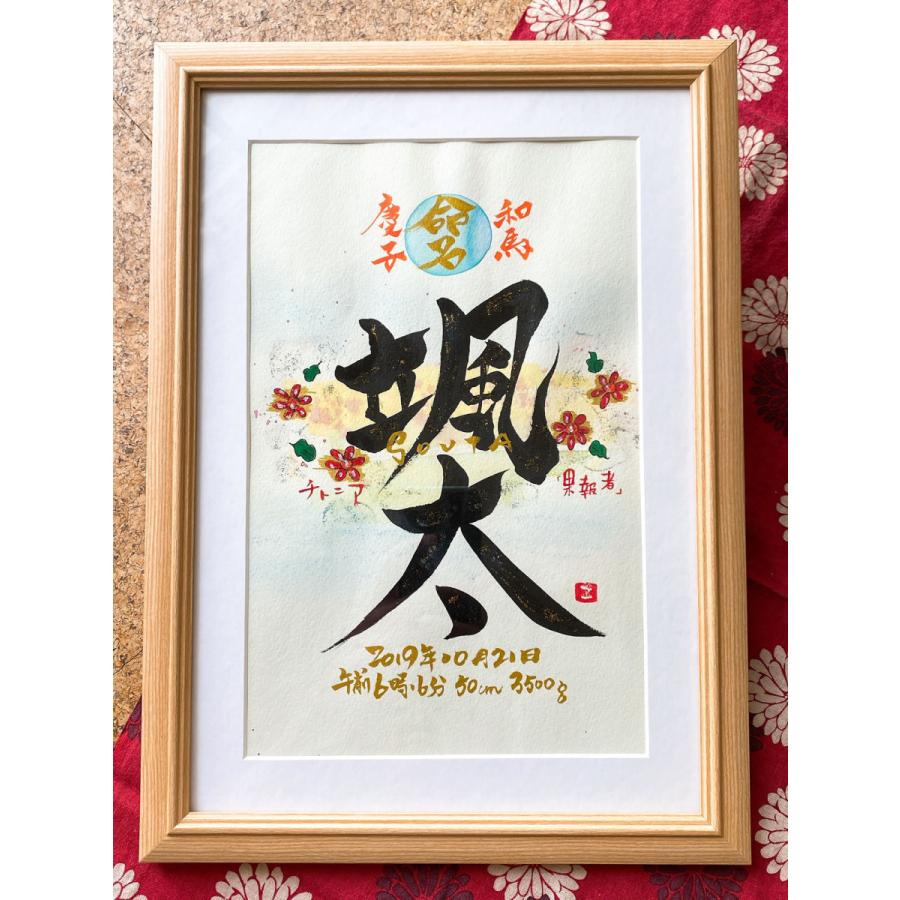 命名
和馬
慶子
颯太
SOUTA
チトニア
「果報者」
2019年10月21日
午前6時6分 50cm 3500g